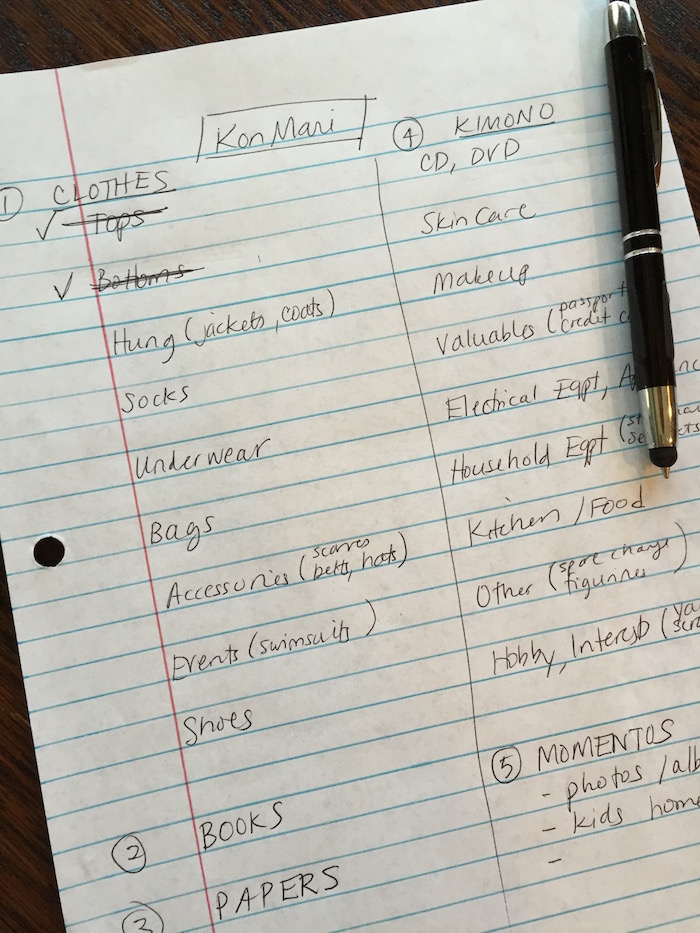 KonMari
① CLOTHES
✓ Tops
✓ Bottoms
Hung (jackets, coats)
Socks
Underwear
Bags
Accessories (scarves
belts, hats)
Events (swimsuits)
Shoes
② BOOKS
③ PAPERS
④ KIMONO
CD, DVD
Skin Care
Makeup
Valuables (passport
credit
Electrical Eqpt,
Household Eqpt
Kitchen / Food
Other (spare change
figurines)
Hobby, Interests
⑤ MOMENTOS
- photos /
- kids
-